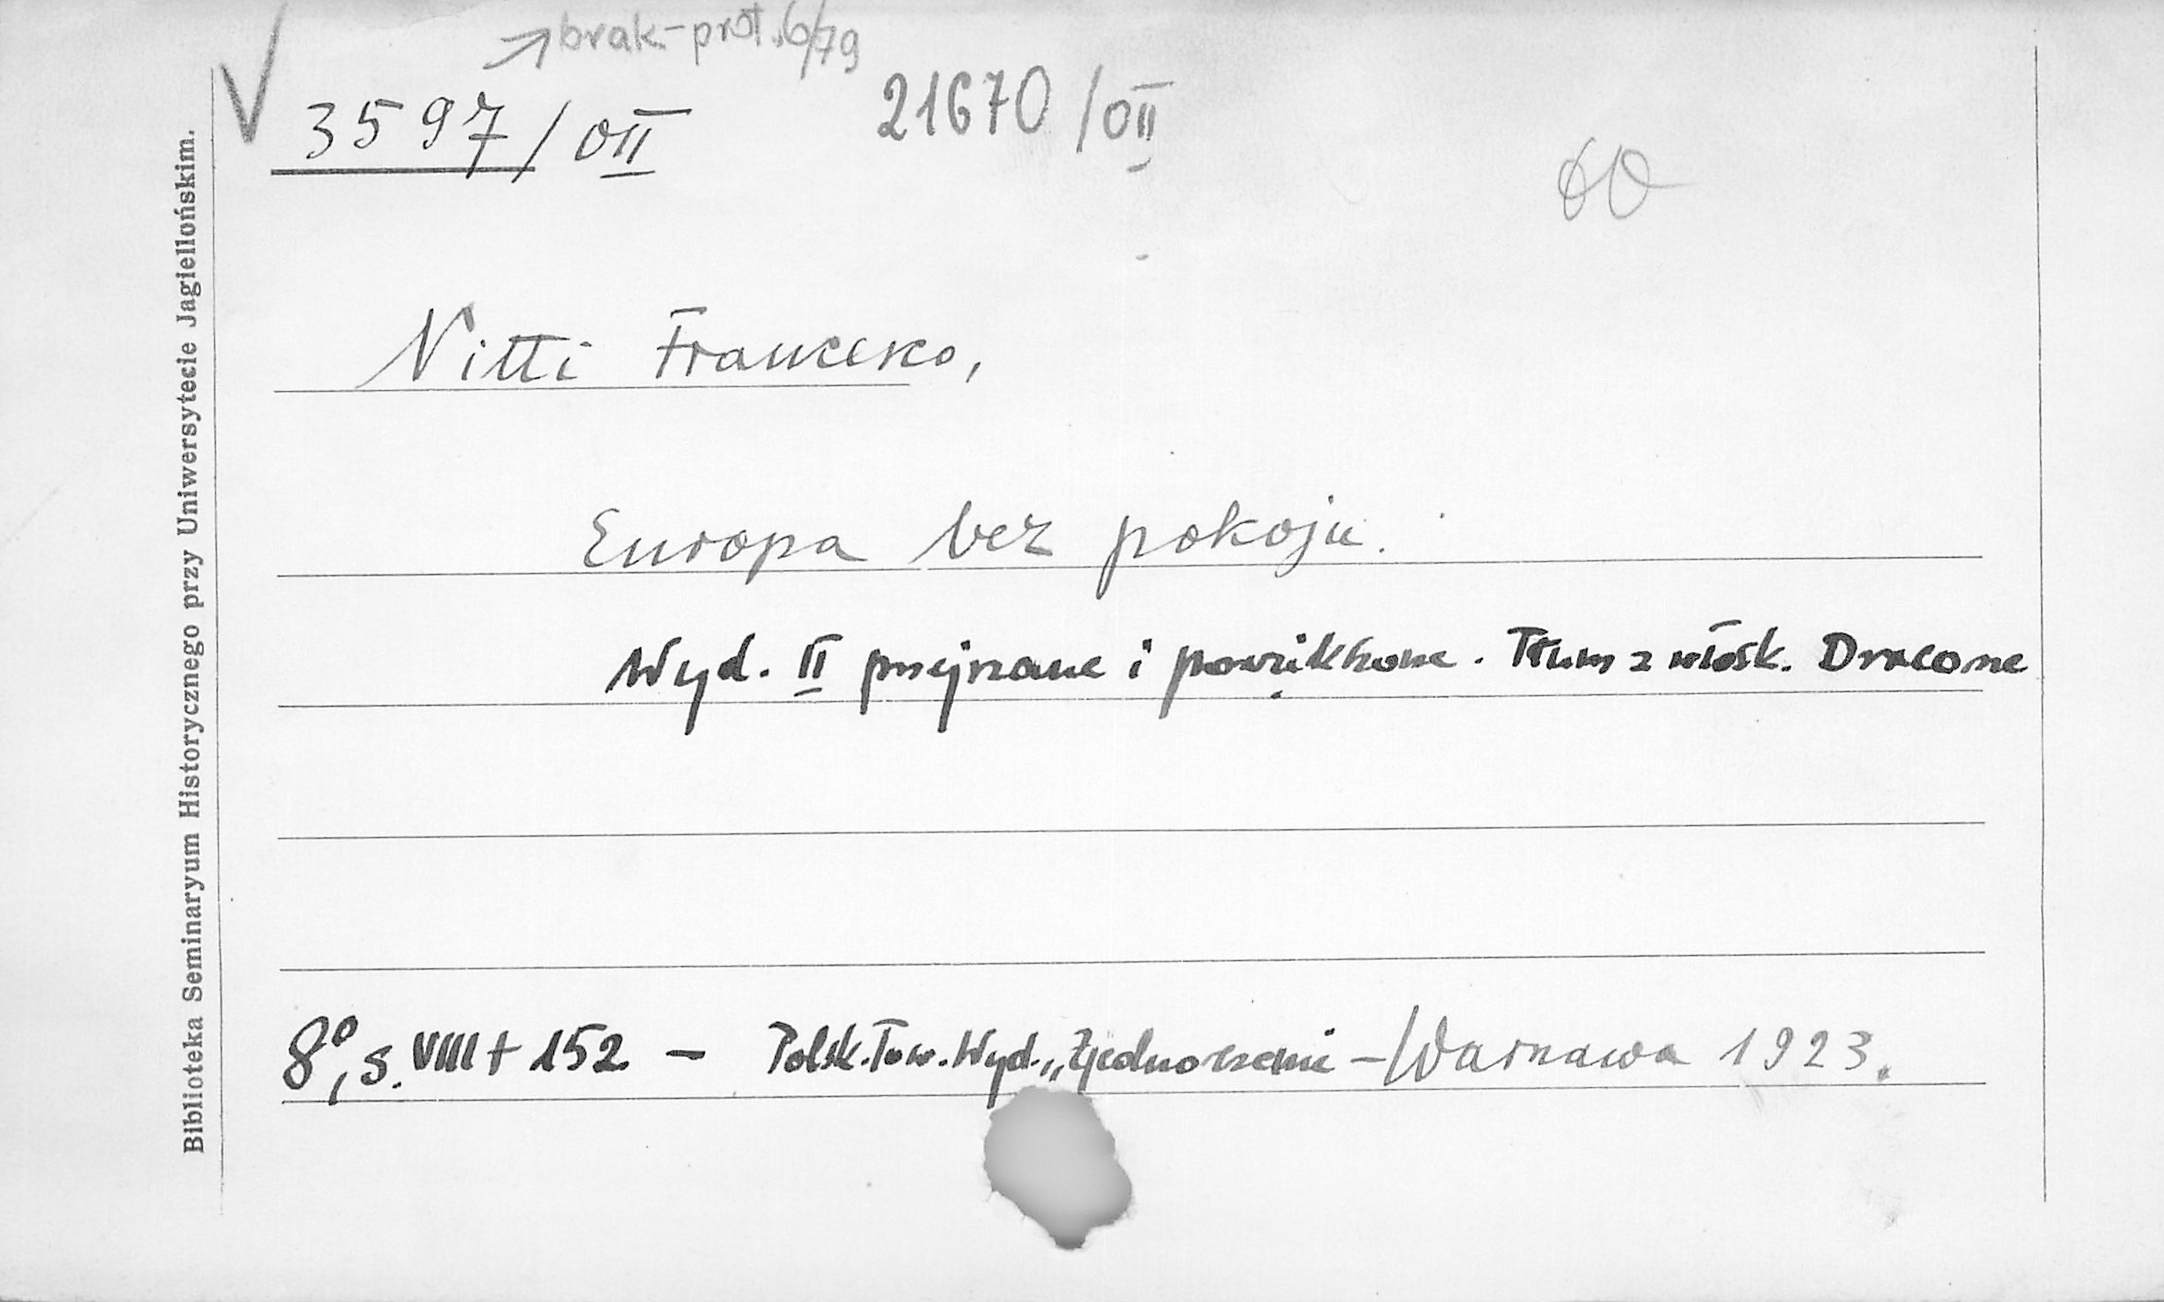 brak-prot.6/79
3597/OII 21670/OII
60
Nitti Francesco,
Europa bez pokoju.
Wyd. II przejrzane i powiększone. Tłum z włosk. Dracone
8°, s. VIII + 152 – Polsk. Tow. Wyd. „Zjednoczenie – Warszawa 1923.
Biblioteka Seminaryum Historycznego przy Uniwersytecie Jagiellońskim.